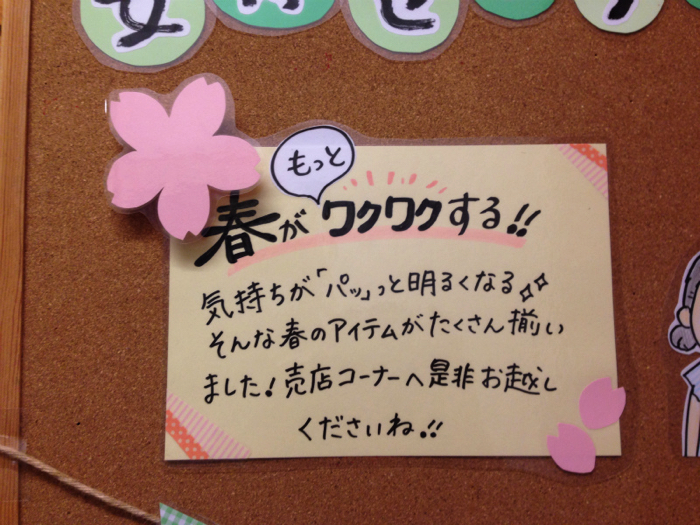 もっと
春がワクワクする!!
気持ちが「パッ」っと明るくなる
そんな春のアイテムがたくさん揃い
ました!売店コーナーへ是非お越し
くださいね!!